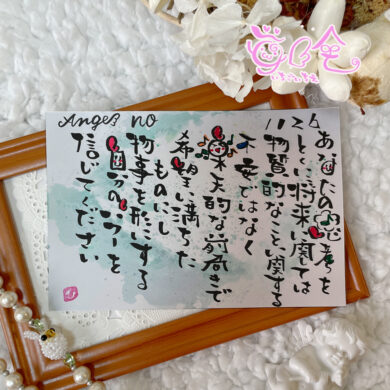 Angel no
1126
あなたの思考を
とくに将来に関しては
物質的なことに関する
不安ではなく
楽天的な前向きで
希望に満ちた
ものにし
物事を形にする
自分のパワーを
信じてください